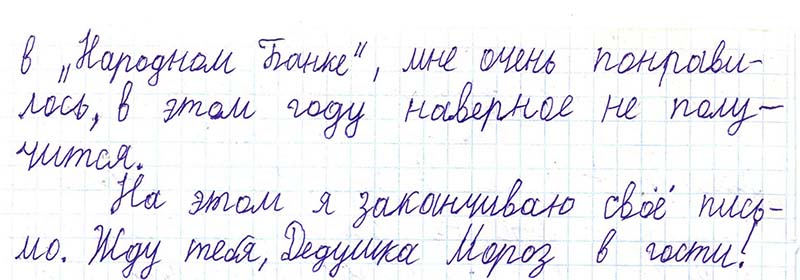 в „Народном Банке", мне очень понрави-
лось, в этом году наверное не полу-
чится.
На этом я заканчиваю своё пись-
мо. Жду тебя, Дедушка Мороз в гости!